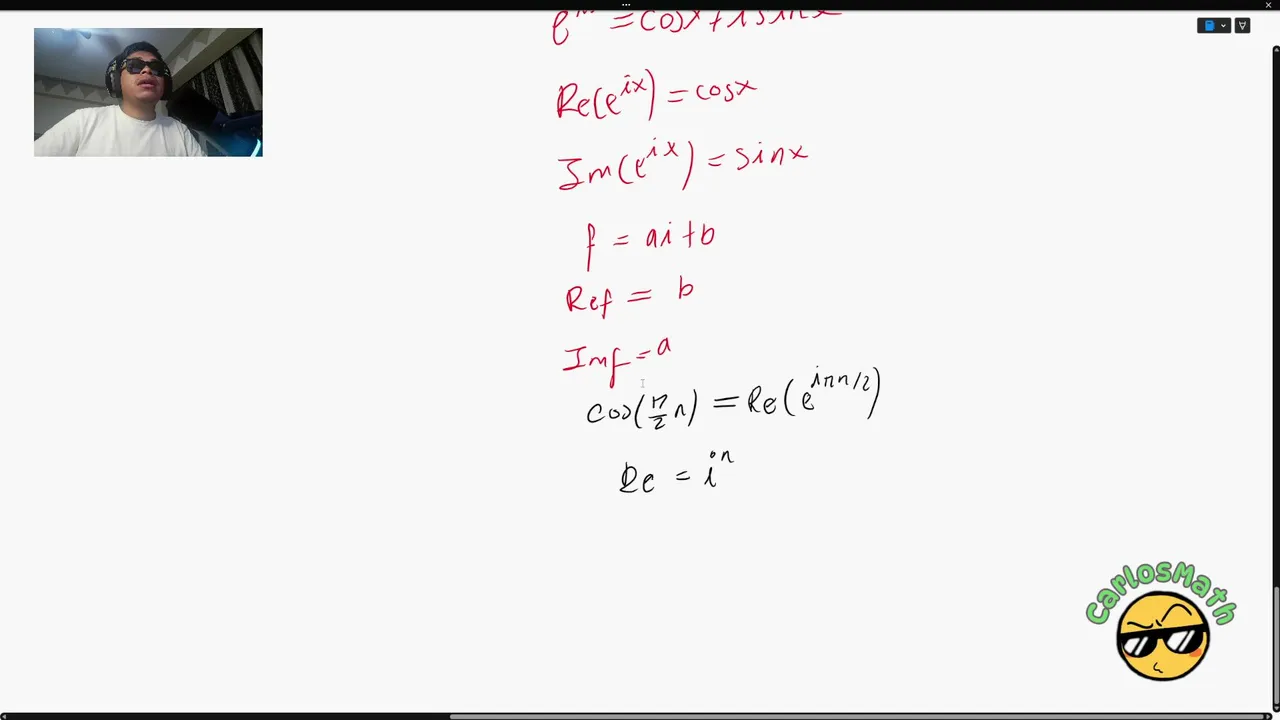 e^{ix} = cosx + i sinx
Re(e^{ix}) = cosx
Im(e^{ix}) = sinx
f = ai + b
Ref = b
Imf = a
cos(π/2 n) = Re(e^{iπn/2})
Re = i^n
CarlosMath